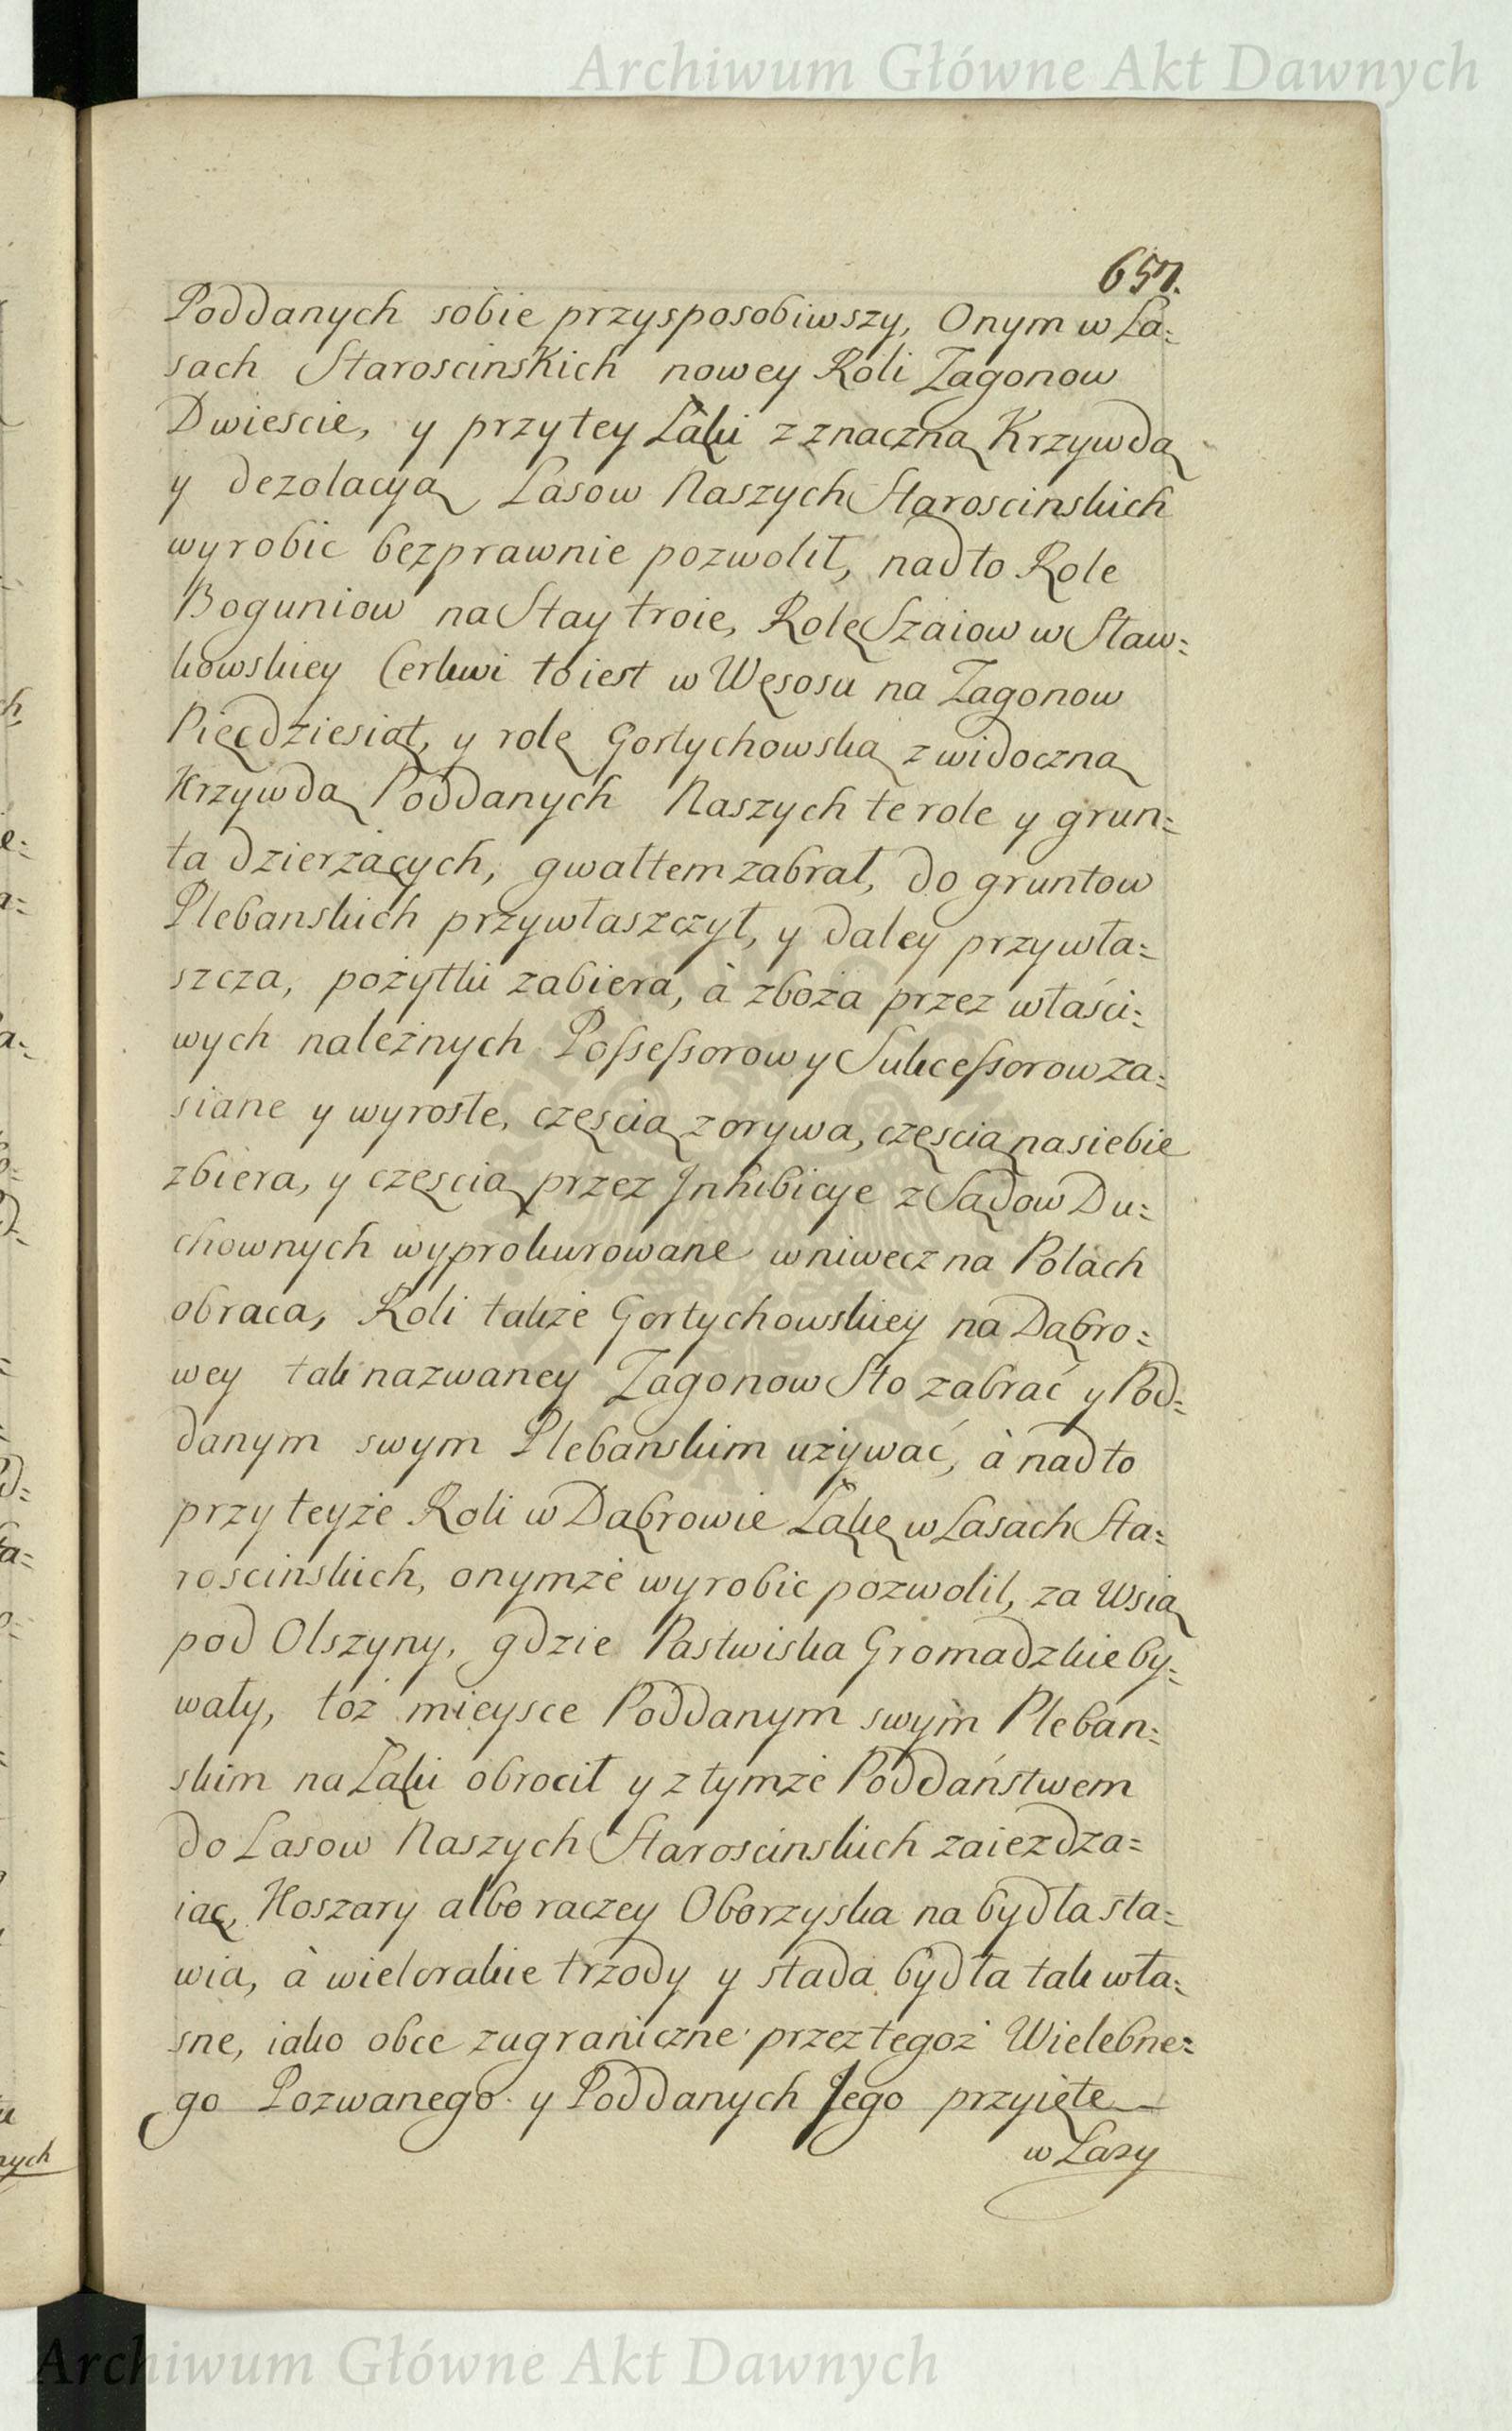 Archiwum Główne Akt Dawnych
657.
Poddanych sobie przysposobiwszy, Onym w La=
sach Staroscinskich nowey Roli Zagonow
Dwiescie, y przytey Łąki z znaczną Krzywdą
y dezolacyą Lasow Naszych Staroscinskich
wyrobic bezprawnie pozwolił, nadto Role
Boguniow na Stay troie, Rolę Szaiow w Staw=
kowskiey Cerkwi toiest w Węsosu na Zagonow
Pięcdziesiąt, y rolę Gortychowską z widoczną
Krzywdą Poddanych Naszych te role y grun=
ta dzierzących, gwałtem zabrał, do gruntow
Plebanskich przywłaszczył, y daley przywła=
szcza, pożytki zabiera, à zboża przez właści=
wych należnych Possessorow y Sukcessorow za=
siane y wyrosłe, częscią zorywa, częscią nasiebie
zbiera, y częscią przez Inhibicye z Sądow Du=
chownych wyprokurowane wniwecz na Polach
obraca, Roli także Gortychowskiey na Dąbro=
wey tak nazwaney Zagonow Sto zabrać y Pod=
danym swym Plebanskim używać, à nadto
przy teyże Roli w Dąbrowie Łąkę w Lasach Sta=
roscinskich, onymże wyrobic pozwolil, za Wsią
pod Olszyny, gdzie Pastwiska Gromadzkie by=
wały, toż mieysce Poddanym swym Pleban=
skim na Łąki obrocił y z tymże Poddaństwem
do Lasow Naszych Staroscinskich zaiezdza=
iąc, Koszary albo raczey Oborzyska na bydła sta=
wia, à wielorakie trzody y stada bydła tak wła=
sne, iako obce zagraniczne przez tegoż Wielebne=
go Pozwanego y Poddanych Jego przyięte
w Lasy
Archiwum Główne Akt Dawnych